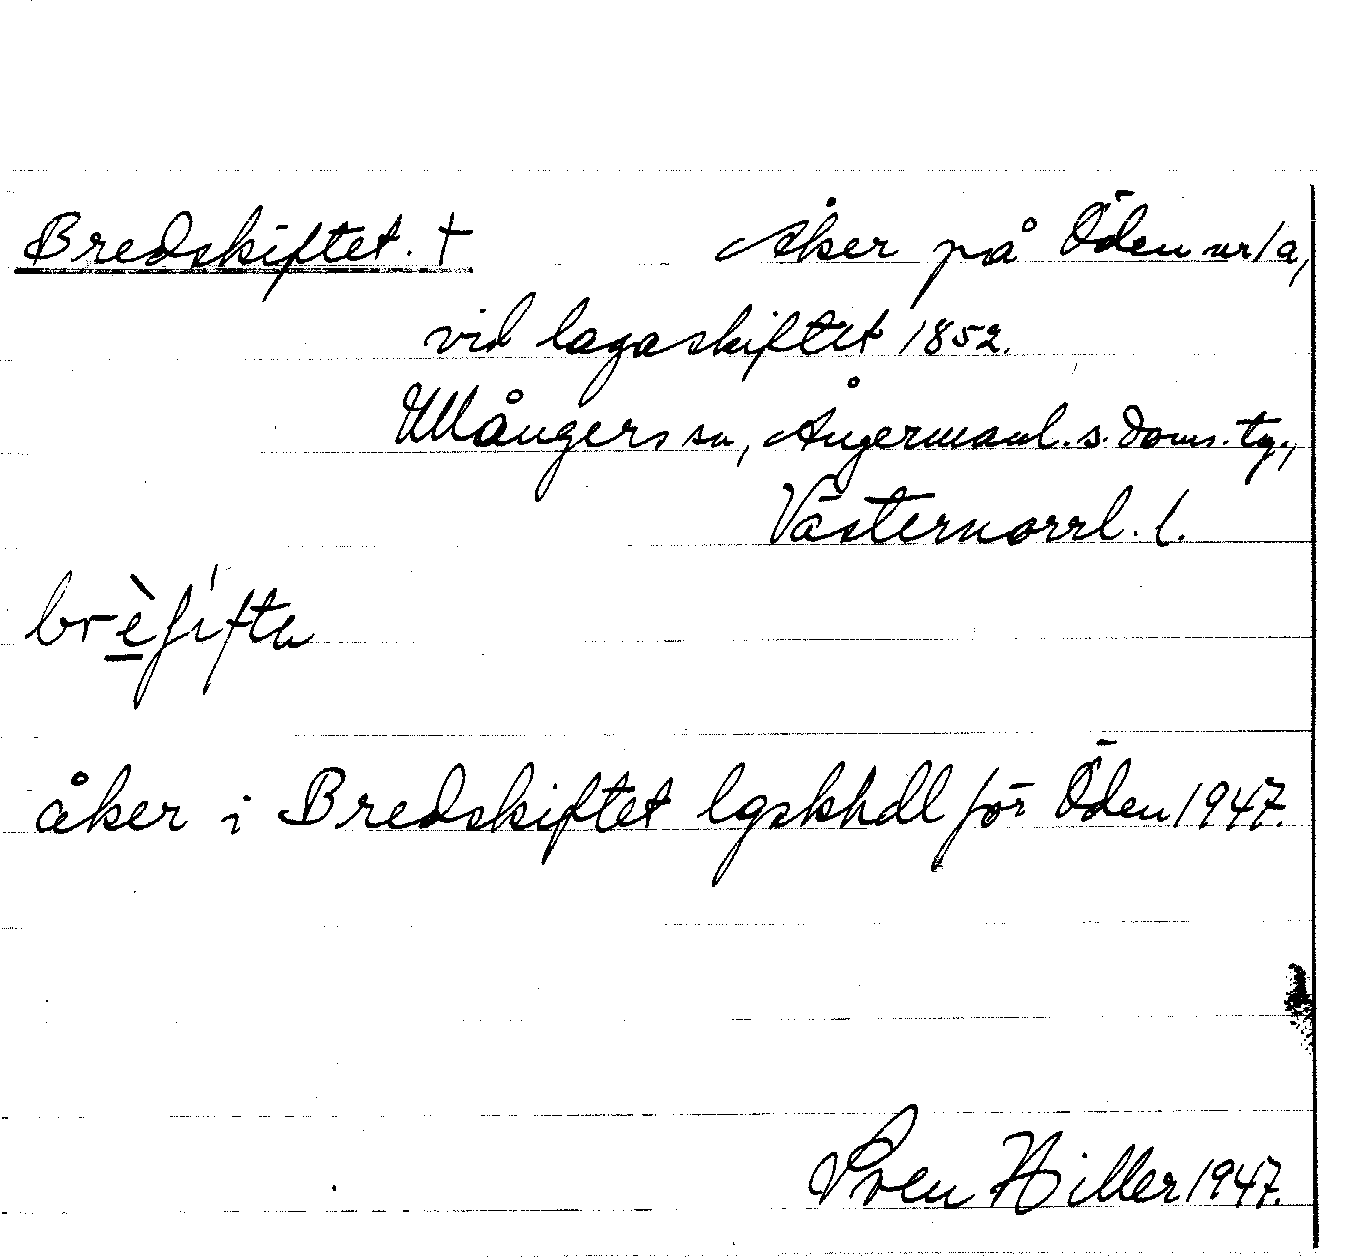 Bredskiftet. † Åker på Öden nr 1a,
vid lagaskiftet 1852.
Ullångers sn, Ångermanl. s. doms. tg.,
Västernorrl. l.
brèʃifta
åker i Bredskiftet lgskhdl för Öden 1947.
Sven Hiller 1947.